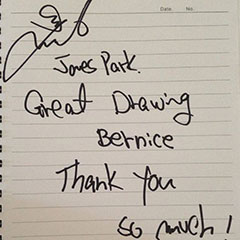 Date. No.
James Park.
Great Drawing
Bernice
Thank You
so much!